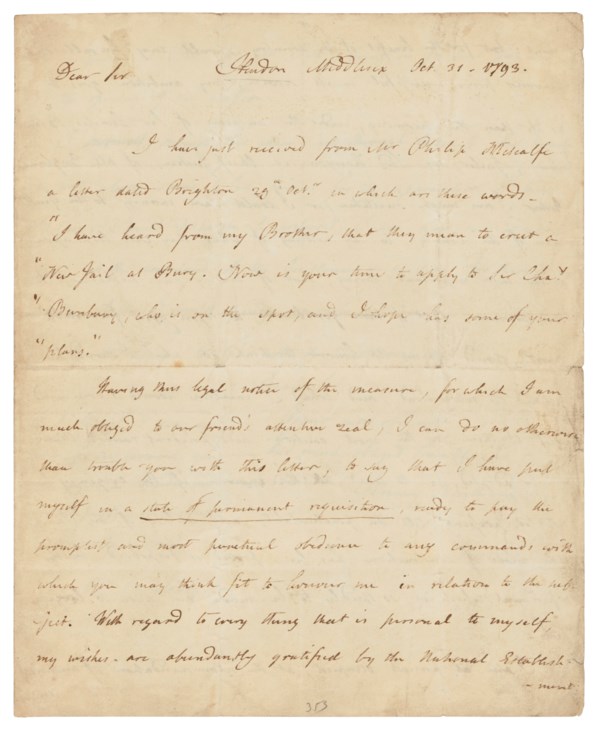 Dear Sir Hendon Middlesex Oct. 31 - 1793.
I have just received from Mr Philip Metcalfe
a letter dated Brighton 29th Octr in which are these words -
"I have heard from my Brother, that they mean to erect a
"New Jail at Bury. Now is your time to apply to Sir Chas
"Bunbury, who is on the spot, and I hope has some of your
"plans."
Having this legal notice of the measure, for which I am
much obliged to our friend's attentive zeal, I can do no otherwise
than trouble you with this letter, to say that I have put
myself in a state of permanent requisition, ready to pay the
promptest and most punctual obedience to any commands with
which you may think fit to honour me in relation to the
ject. With regard to every thing that is personal to myself,
my wishes are abundantly gratified by the National Establish-
-ment
353